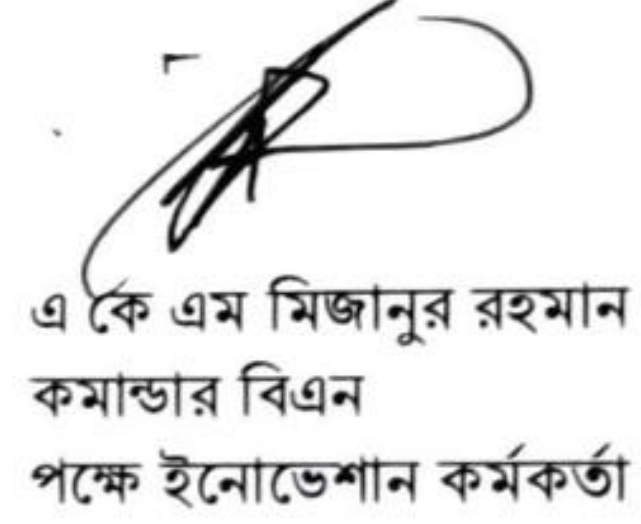 এ কে এম মিজানুর রহমান
কমান্ডার বিএন
পক্ষে ইনোভেশান কর্মকর্তা